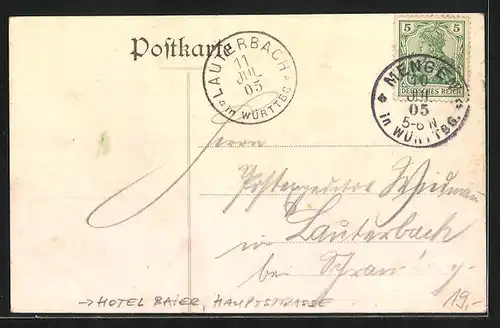 Postkarte
LAUTERBACH
11
JUL
05
in WÜRTTBG.
5 5
DEUTSCHES REICH
MENGEN
10
JUL
05
5-6 N
in WÜRTTBG.
Herrn
Postexpeditor
in Lauterbach
bei
→ HOTEL BAIER, HAUPTSTRASSE
19,-